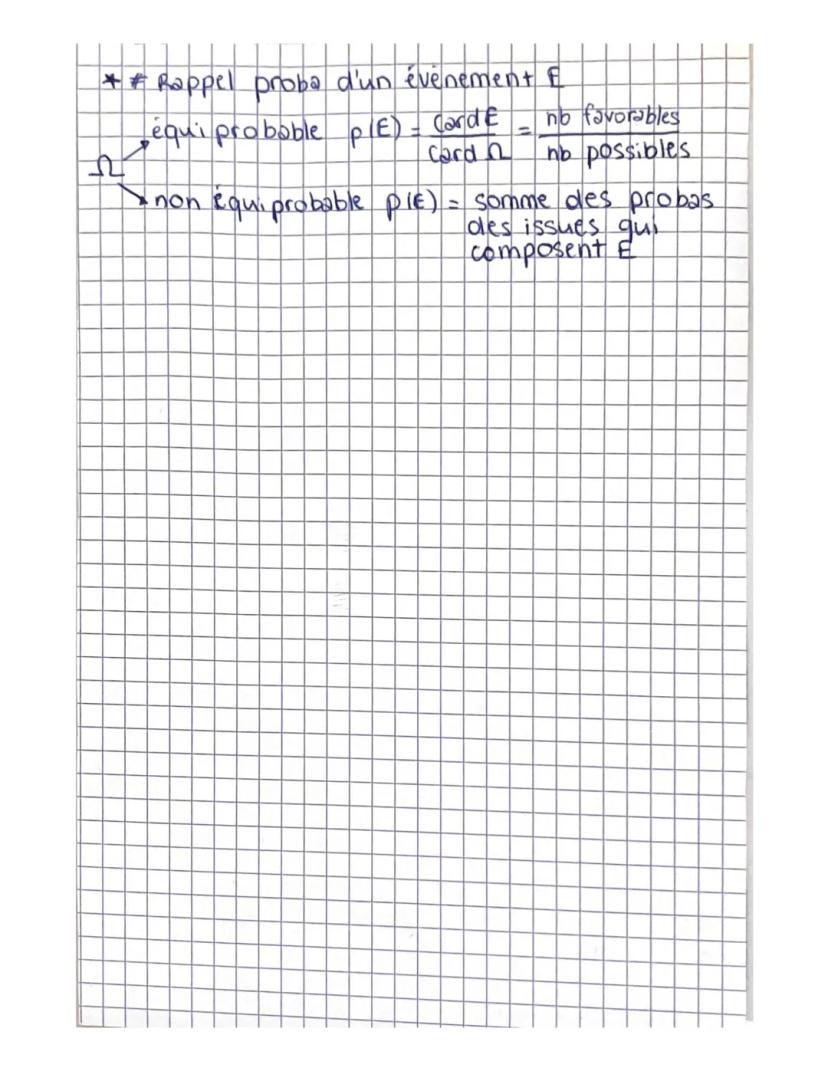 * # Rappel proba d'un évènement E
équiprobable p(E) = Card E / Card Ω = nb favorables / nb possibles
Ω
non équiprobable p(E) = somme des probas
des issues qui
composent E